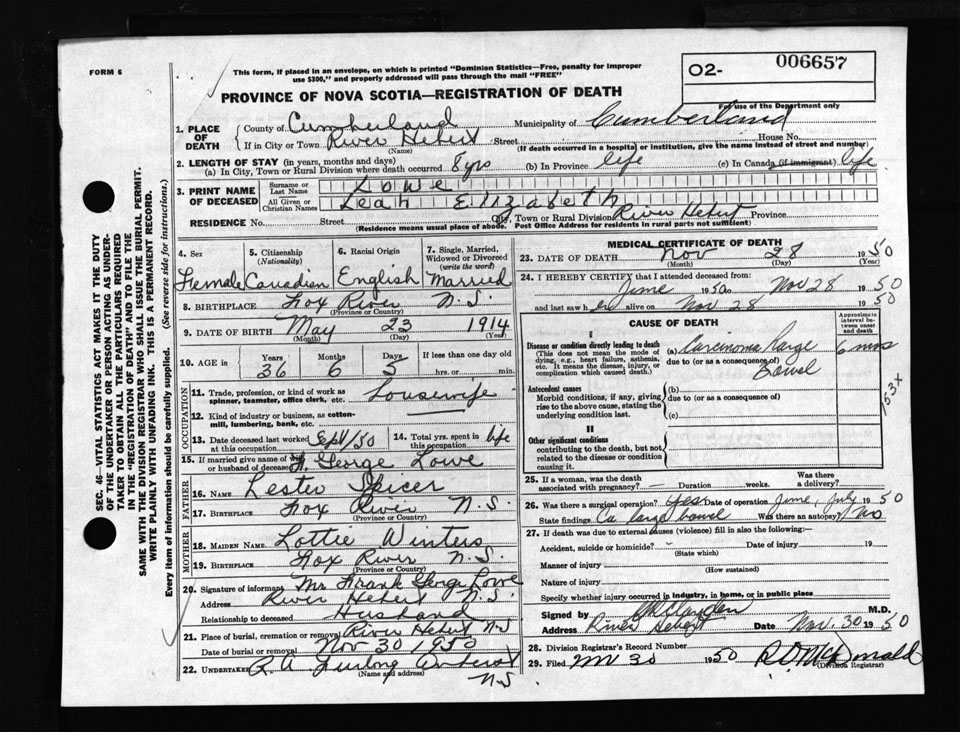 FORM 6
This form, if placed in an envelope, on which is printed "Dominion Statistics—Free, penalty for improper
use $300," and properly addressed will pass through the mail "FREE"
O2-
006657
For use of the Department only
PROVINCE OF NOVA SCOTIA—REGISTRATION OF DEATH
1. PLACE OF DEATH
County of Cumberland Municipality of Cumberland
If in City or Town River Hebert Street House No.
(Name) (If death occurred in a hospital or institution, give the name instead of street and number)
2. LENGTH OF STAY (in years, months and days)
(a) In City, Town or Rural Division where death occurred 8 yrs (b) In Province life (c) In Canada (if immigrant) life
3. PRINT NAME OF DECEASED
Surname or Last Name Lowe
All Given or Christian Names Leah Elizabeth
RESIDENCE No. Street City, Town or Rural Division River Hebert Province
(Residence means usual place of abode. Post Office Address for residents in rural parts not sufficient)
4. Sex Female
5. Citizenship (Nationality) Canadian
6. Racial Origin English
7. Single, Married, Widowed or Divorced (write the word) Married
8. BIRTHPLACE Fox River N.S.
(Province or Country)
9. DATE OF BIRTH May 23 1914
(Month) (Day) (Year)
10. AGE in Years 36 Months 6 Days 5 If less than one day old hrs. or min.
OCCUPATION
11. Trade, profession or kind of work as spinner, teamster, office clerk, etc. Housewife
12. Kind of industry or business, as cotton-mill, lumbering, bank, etc.
13. Date deceased last worked at this occupation Sept/50
14. Total yrs. spent in this occupation life
15. If married give name of or husband of deceased George Lowe
FATHER
16. NAME Lester Spicer
17. BIRTHPLACE Fox River N.S.
(Province or Country)
MOTHER
18. MAIDEN NAME Lottie Winters
19. BIRTHPLACE Fox River N.S.
(Province or Country)
20. Signature of informant Mr Frank George Lowe
Address River Hebert N.S.
Relationship to deceased Husband
21. Place of burial, cremation or removal River Hebert N.S
Date of burial or removal Nov 30 1950
22. UNDERTAKER R. A. Furlong Amherst
(Name and address) N.S.
MEDICAL CERTIFICATE OF DEATH
23. DATE OF DEATH Nov 28 1950
(Month) (Day) (Year)
24. I HEREBY CERTIFY that I attended deceased from
June 1950 to Nov 28 1950
and last saw her alive on Nov 28 1950
CAUSE OF DEATH
Approximate interval between onset and death
I
Disease or condition directly leading to death
(This does not mean the mode of dying, e.g., heart failure, asthenia, etc. It means the disease, injury, or complication which caused death.)
(a) Carcinoma Large 6 mos
due to (or as a consequence of) Bowel
Antecedent causes
Morbid conditions, if any, giving rise to the above cause, stating the underlying condition last.
(b)
due to (or as a consequence of)
(c)
153X
II
Other significant conditions
contributing to the death, but not related to the disease or condition causing it.
25. If a woman, was the death associated with pregnancy? — Duration weeks. Was there a delivery?
26. Was there a surgical operation? yes Date of operation June, July 1950
State findings Ca large bowel Was there an autopsy? No
27. If death was due to external causes (violence) fill in also the following:
Accident, suicide or homicide? - Date of injury 19
(State which)
Manner of injury
(How sustained)
Nature of injury
Specify whether injury occurred in industry, in home, or in public place
Signed by M.D.
Address River Hebert Date Nov. 30 1950
28. Division Registrar's Record Number
29. Filed Nov 30 1950
(Division Registrar)
SEC. 46—VITAL STATISTICS ACT MAKES IT THE DUTY
OF THE UNDERTAKER OR PERSON ACTING AS UNDERTAKER
TO OBTAIN ALL THE PARTICULARS REQUIRED
IN THE "REGISTRATION OF DEATH" AND TO FILE THE
SAME WITH THE DIVISION REGISTRAR WHO SHALL ISSUE THE BURIAL PERMIT.
WRITE PLAINLY WITH UNFADING INK. THIS IS A PERMANENT RECORD.
Every item of information should be carefully supplied. (See reverse side for instructions.)